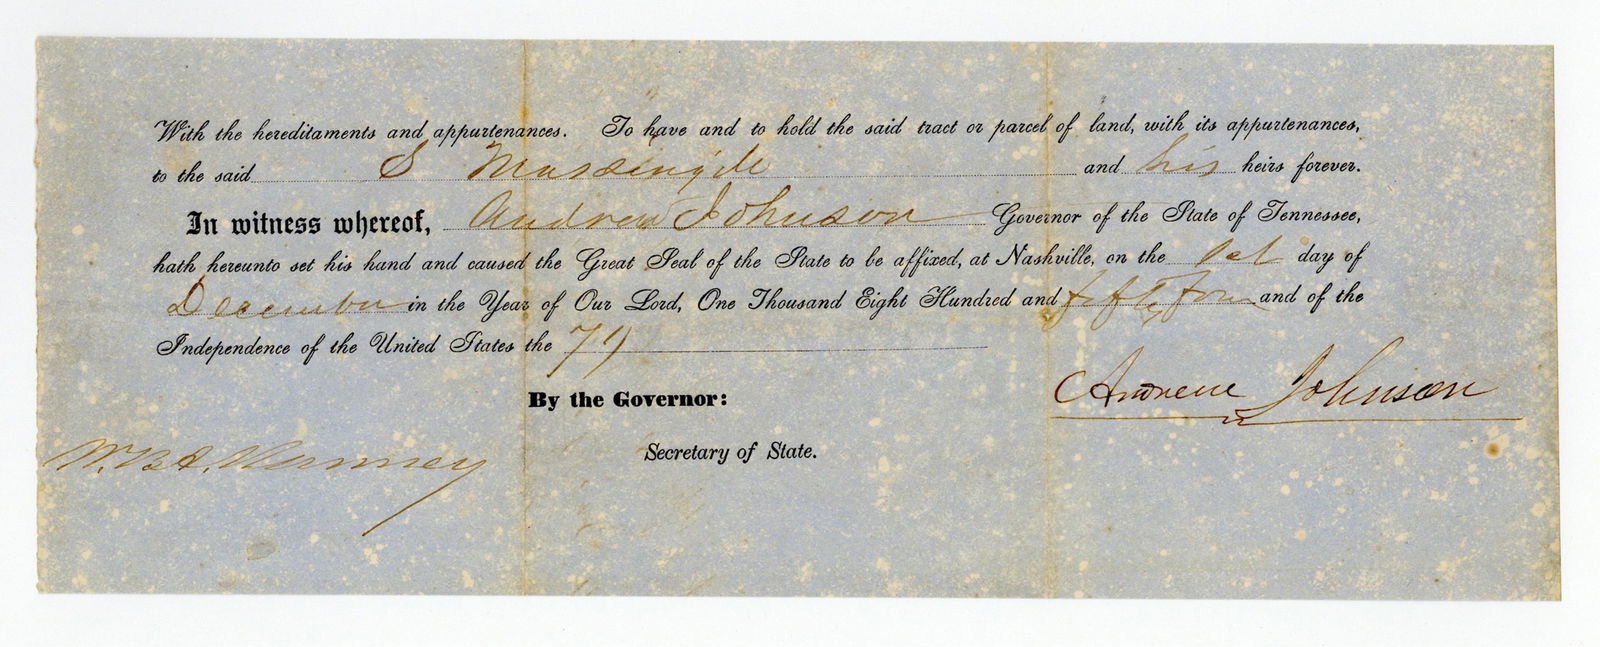 With the hereditaments and appurtenances. To have and to hold the said tract or parcel of land, with its appurtenances,
to the said E Massengill and his heirs forever.
In witness whereof, Andrew Johnson Governor of the State of Tennessee,
hath hereunto set his hand and caused the Great Seal of the State to be affixed, at Nashville, on the 1st day of
December in the Year of Our Lord, One Thousand Eight Hundred and fifty four and of the
Independence of the United States the 79
By the Governor:
Andrew Johnson
Secretary of State.
W. B. A. Ramsey